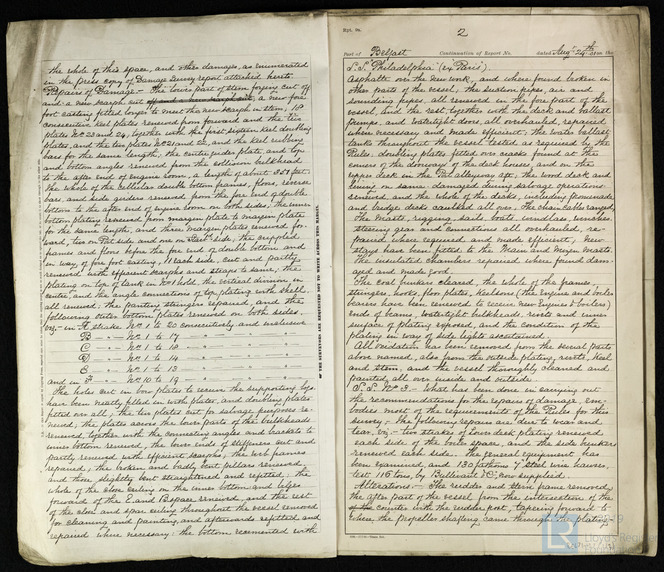 the whole of this space, and other damages, as enumerated
in the press copy of Damage Survey report attached hereto.
Repairs of Damage:- The lower part of stem forging cut off
and a new scarph cut off and a new scarph cut, a new fore
foot casting fitted longer to meet the new scarph in stem, 18
consecutive keel plates renewed from forward and the two
plates Nos 23 and 24, together with the first sixteen keel doubling
plates, and the two plates Nos 21 and 22, and the keel rubbing
bars for the same length; the centre girder plate, and top
and bottom angles renewed from the collision bulkhead
to the after end of engine room, a length of about 351 feet.
The whole of the cellular double bottom frames, floors, reverse
bars, and side girders renewed from the fore end of double
bottom to the after end of engine room on both sides, the inner
bottom plating renewed from margin plate to margin plate
for the same length, and three margin plates renewed for-
ward, two on Port side and one on Starb side; the crippled
frames and floors before the fore end of double bottom and
in way of fore foot casting, each side, cut and partly
renewed with efficient scarphs and straps to same; the
plating on top of tank in No 1 hold, the vertical division in
centre, and the angle connections of top plating with shell,
all renewed, the panting stringers repaired, and the
following outer bottom plates renewed on both sides.
viz:- in A strake Nos 1 to 20 consecutively and inclusive
B - Nos 1 to 17
C - Nos 1 to 12
D - Nos 1 to 14
E - Nos 1 to 13
and in F - Nos 10 to 19
The holes cut in bow plates to receive the supporting logs
have been neatly filled in with plates, and doubling plates
fitted over all; the two plates cut for salvage purposes re-
newed, the plates across the lower parts of the bulkheads
renewed, together with the connecting angles and brackets to
inner bottom renewed, the lower ends of stiffeners cut and
partly renewed with efficient scarphs; the web frames
repaired; the broken and badly bent pillars renewed,
and those slightly bent straightened and refitted; the
whole of the close ceiling on the inner bottom and bilges
forward of the E and B space renewed, and the rest
of the close and spar ceiling throughout the vessel removed
for cleaning and painting, and afterwards refitted and
repaired where necessary; the bottom recemented with
Rpt. 9a.
2
Port of Belfast Continuation of Report No. dated Augt 24th on the
S.S. "Philadelphia" (ex Paris)
Asphalte over the new work, and where found broken in
other parts of the vessel; the suction pipes, air and
sounding pipes, all renewed in the fore part of the
vessel, and the rest, together with the deck and ballast
pumps, and watertight doors, all overhauled, repaired
where necessary and made efficient; the water ballast
tanks throughout the vessel tested as required by the
Rules, doubling plates fitted over cracks found at the
corners of the doorways of the deck houses, and on the
upper deck in the Port alleyway aft; the wood deck and
lining on same damaged during salvage operations
renewed, and the whole of the decks, including promenade
and bridge decks caulked all over, the chain cables ranged
The masts, rigging, sails, boats, windlass, winches,
steering gear and connections all overhauled, re-
paired where required and made efficient, new
stays have been fitted to the Main and Mizen masts.
The insulated chambers repaired where found dam-
aged and made good.
The coal bunkers cleared, the whole of the frames,
stringers, hooks, floor plates, Keelsons (the Engine and boiler
bearers have been renewed to receive new Engines & boilers)
ends of beams, watertight bulkheads, rivets and inner
surface of plating exposed, and the condition of the
plating in way of side lights ascertained.
All oxidation has been removed from the several parts
above named, also from the outside plating, rivets, keel
and stem, and the vessel thoroughly cleaned and
painted all over inside and outside.
S.S. No 3. What has been done in carrying out
the recommendations for the repairs of damage, em-
bodies most of the requirements of the Rules for this
survey:- The following repairs are due to wear and
tear, viz:- Two strakes of lower deck plating renewed
each side of the boiler space, and the side bunkers
renewed each side. The general equipment has
been examined, and 130 fathoms 7 Steel wire hawser,
test 116 tons, by Bullivant & Co, now supplied.
Alterations:- The rudder and stern frame removed,
the after part of the vessel from the intersection of the
counter with the rudder post, tapering forward to
where the propeller shafting came through the plating
Lloyd's Register